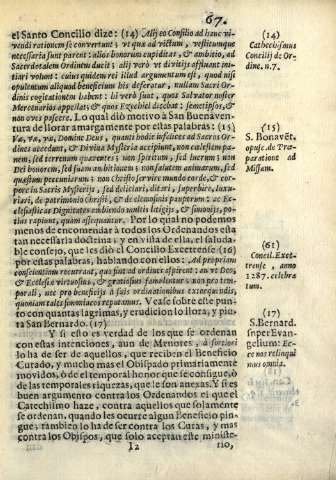 67.
el Santo Concillo dize: (14) Alij eo Consilio ad hanc vi-
vendi rationem se convertunt; vt quæ ad victum, vestitumque
necessaria sunt parent: alios honorum cupiditas, & ambitio, ad
Sacros Ordines ducit; alij verò vt divitijs affluant ini-
tiari volunt: cuius quidem rei illud argumentum est, quod nisi
opulentum aliquod beneficium his deferatur, nullam Sacri Or-
dinis cogitationem habent: hi verò sunt, quos Salvator noster
Mercenarios appellat; & quos Ezechiel dicebat; semetipsos, &
non oves pascere. Lo qual diò motivo à San Buenaven
tura de llorar amargamente por estas palabras: (15)
Va, va, va, Domine Deus, quanti hodie infelices ad Sacros Or-
dines accedunt, & Divina Mysteria accipiunt, non cælestem pa-
nem, sed terrenum quærentes; non Spiritum, sed lucrum; non
Dei honorem, sed suam ambitionem; non salutem animarum, sed
quæstum pecuniarum; non Christo servire mundo corde, & cor-
pore in Sacris Mysterijs, sed deliciari, ditari, superbire, luxu-
riari, de patrimonio Christi, & de elemosinis pauperum: ac Ec-
clesiasticas Dignitates ambiendo multis litigijs, & simonijs, po-
tius rapiunt, quàm assequantur. Por lo qual no podemos
menos de encomendar à todos los Ordenandos esta
tan necessaria doctrina; y en vista de ella, el saluda-
ble consejo, que les diò el Concilio Exertense (16)
por estas palabras, hablando con ellos: Ad propriam
conscientiam recurrant, qua sint ad ordines aspirent: an vt Deo,
& Ecclesiæ virtuosius, & gratiosius famulentur: non pro tem-
porali, nec pro beneficijs à suis ordinationibus extorquendis,
quoniam tales simoniacos reputamus. Vease sobre este pun-
to con quantas lagrimas, y erudicion lo llora, y pin-
ta San Bernardo. (17)
Y si esto es verdad de los que se ordenan
con estas intenciones, aun de Menores, à fortiori
lo ha de ser de aquellos, que reciben el Beneficio
Curado, y mucho mas el Obispado primariamente
movidos, ò de el temporal honor que se consigue, ò
de las temporales riquezas, que le son anexas. Y si es
buen argumento contra los Ordenandos el que el
Catechismo haze, contra aquellos que solamente
se ordenan, quando les ocurre algun Beneficio pin-
gue; tambien lo ha de ser contra los Curas, y mas
contra los Obispos, que solo aceptan este ministe-
I2
rio,
(14)
Cathechismus
Concilij de Or-
dine. n. 7.
(15)
S. Bonavẽt.
opusc. de Præ-
paratione ad
Missam.
(61)
Concil. Exet-
trense, anno
1287. celebra
tum.
(17)
S. Bernard.
super Evan-
gelium: Ec-
ce nos reliqui
mus omnia.